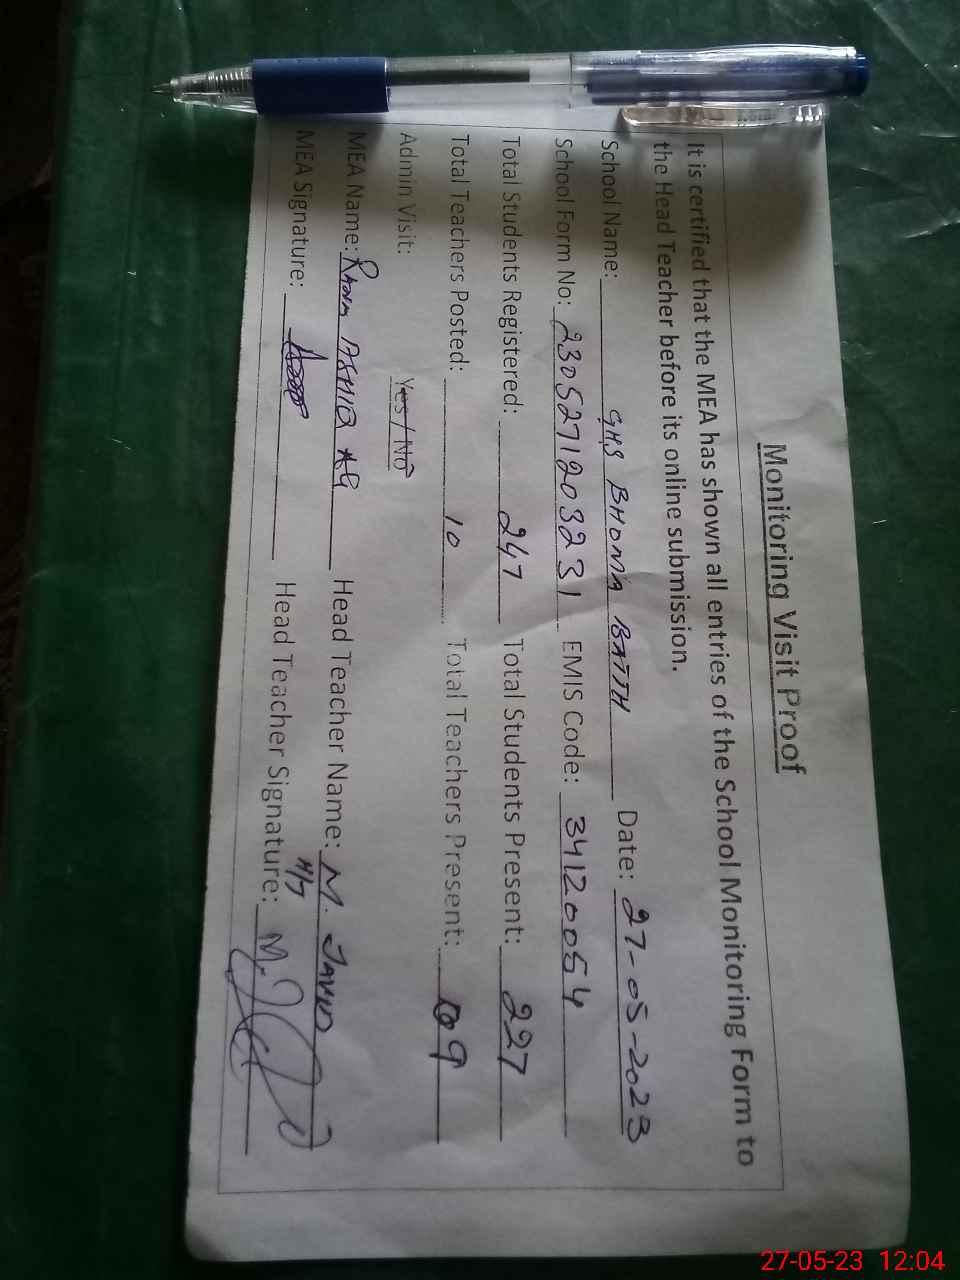 Monitoring Visit Proof
It is certified that the MEA has shown all entries of the School Monitoring Form to
the Head Teacher before its online submission.
School Name: GHS BHOMA BATTH Date: 27-05-2023
School Form No: 230527120323 1 EMIS Code: 34120054
Total Students Registered: 247 Total Students Present: 227
Total Teachers Posted: 10 Total Teachers Present: 09
Admin Visit: Yes / No
MEA Name: RANA ASHIQ Ali Head Teacher Name: M. JAVID
MEA Signature: Head Teacher Signature:
27-05-23 12:04